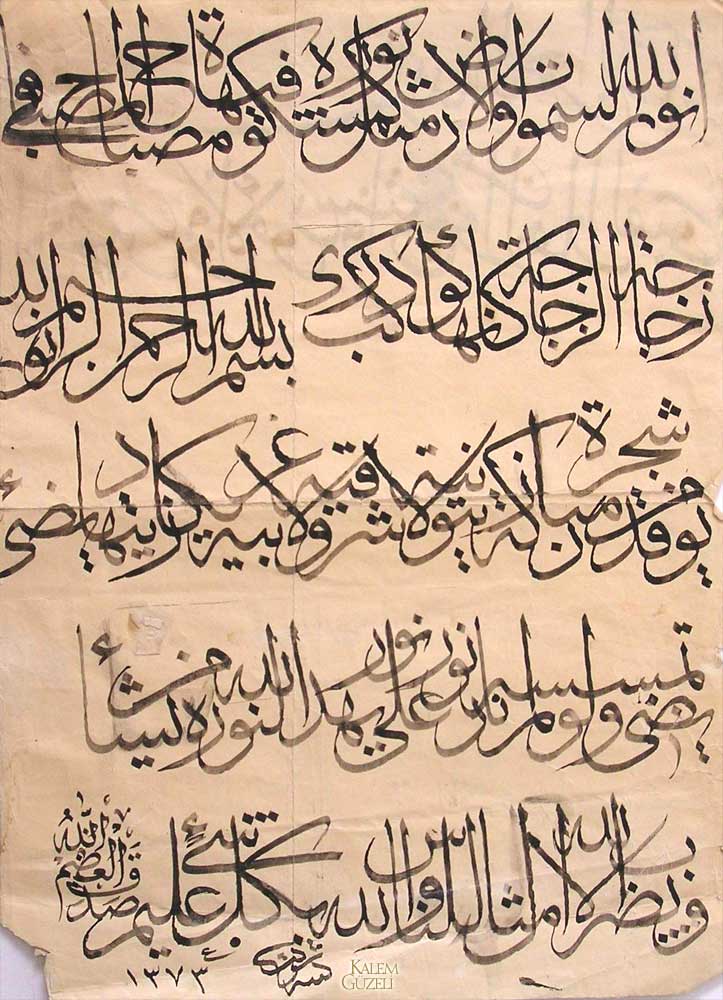 الله نور السموات والارض مثل نوره كمشكوة فيها مصباح المصباح في
زجاجة الزجاجة كأنها كوكب درى
بسم الله الرحمن الرحيم الله نور
يوقد من شجرة مباركة زيتونة لا شرقية ولا غربية يكاد زيتها يضئ
ولو لم تمسسه نار نور على نور يهدى الله لنوره من يشاء
ويضرب الله الامثال للناس والله بكل شئ عليم
صدق الله العظيم
١٣٧٣
KALEM
GÜZELİ